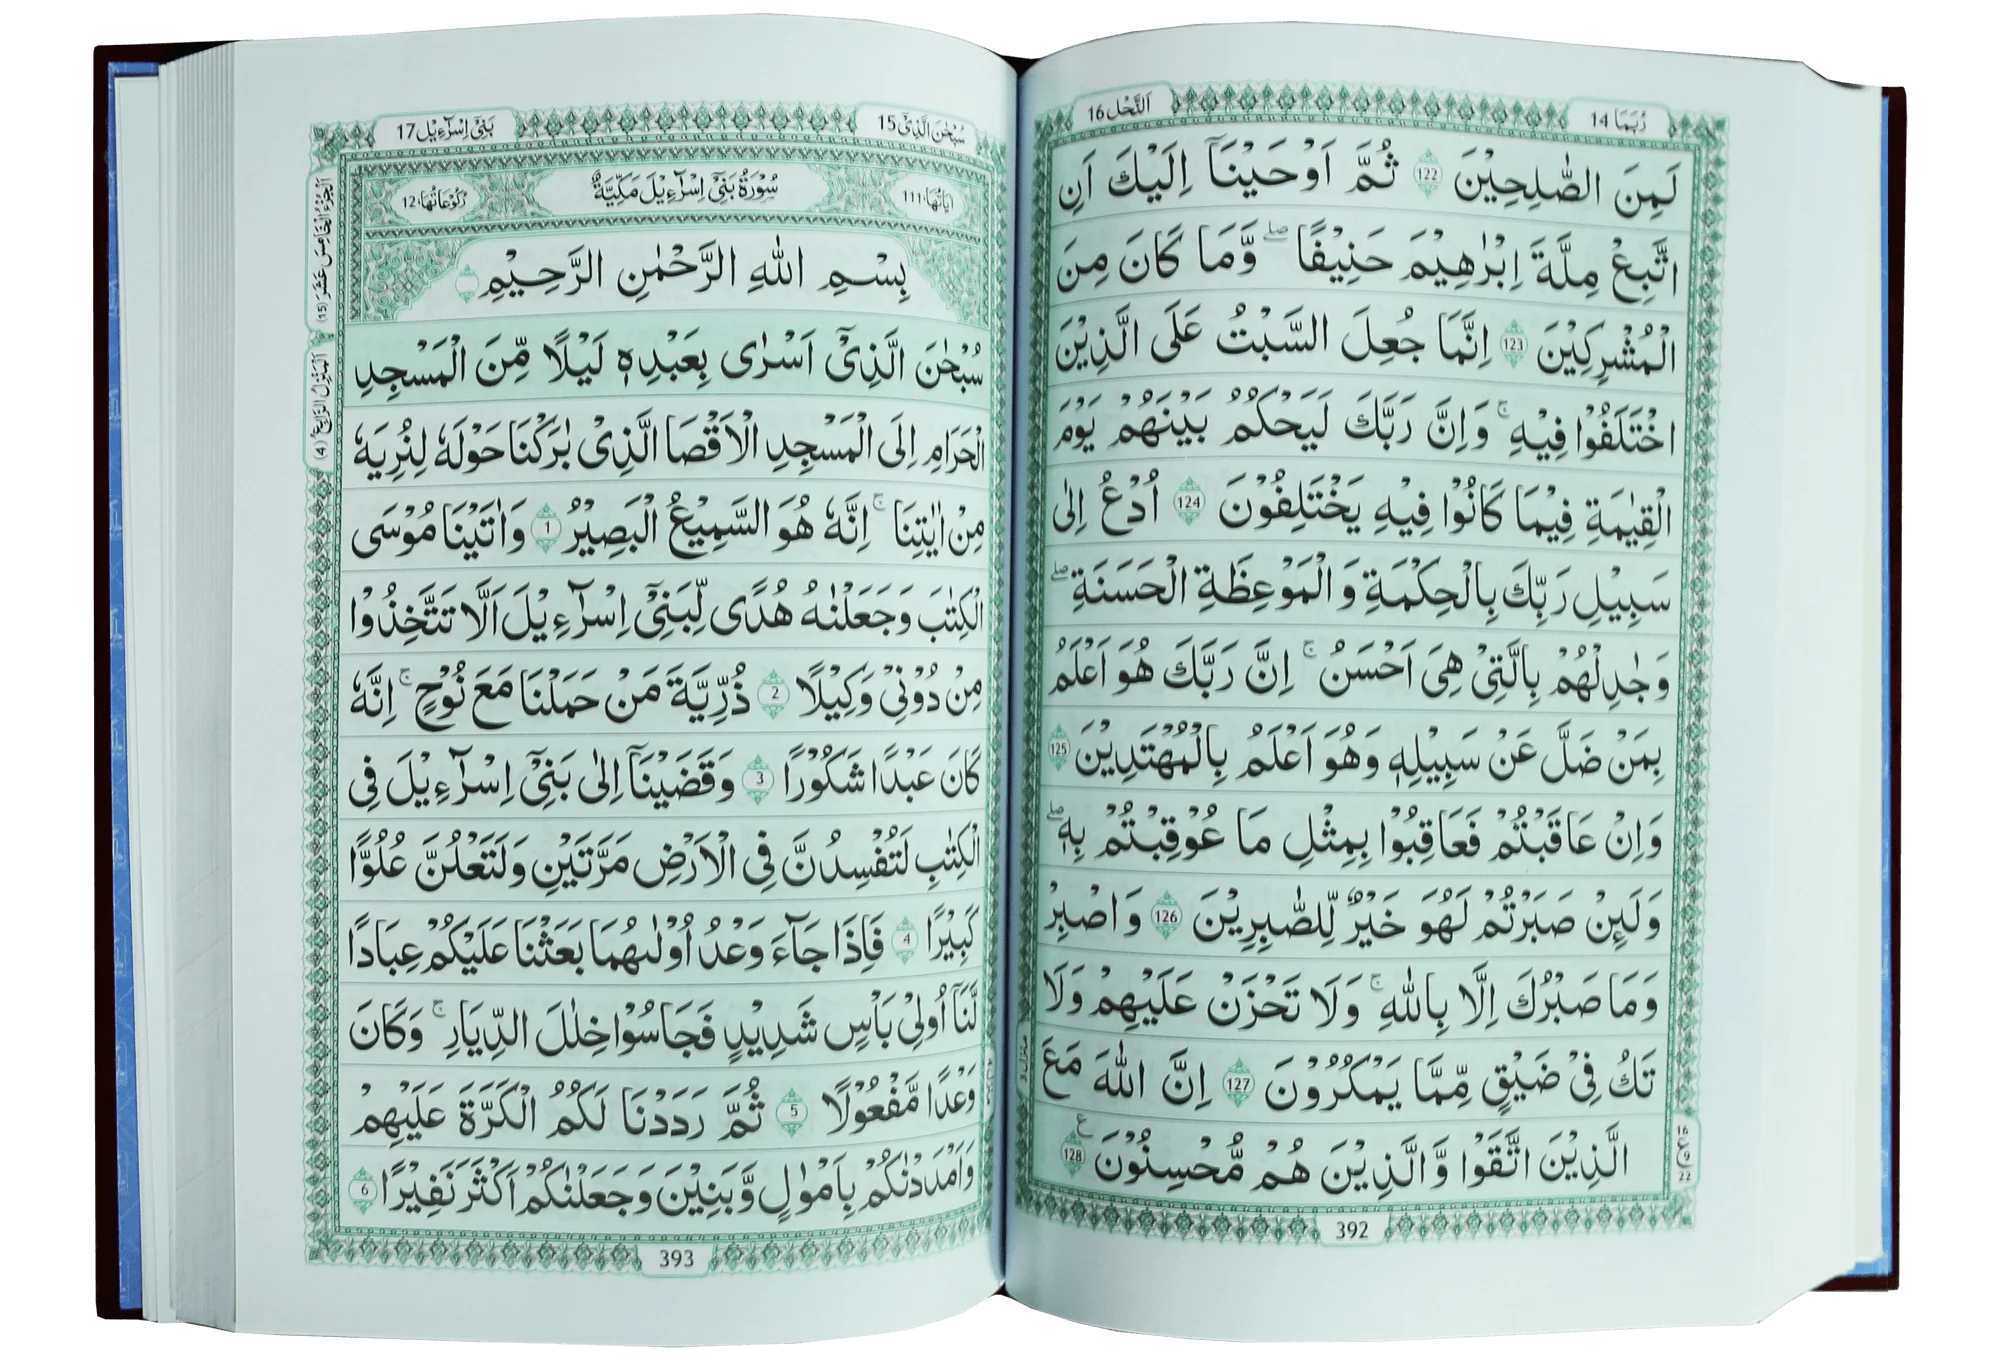 رُبَمَا 14
اَلنَّحْل 16
لَمِنَ الصّٰلِحِيْنَ 122 ثُمَّ اَوْحَيْنَاۤ اِلَيْكَ اَنِ
اتَّبِعْ مِلَّةَ اِبْرٰهِيْمَ حَنِيْفًا ۖ وَّمَا كَانَ مِنَ
الْمُشْرِكِيْنَ 123 اِنَّمَا جُعِلَ السَّبْتُ عَلَى الَّذِيْنَ
اخْتَلَفُوْا فِيْهِ ۚ وَاِنَّ رَبَّكَ لَيَحْكُمُ بَيْنَهُمْ يَوْمَ
الْقِيٰمَةِ فِيْمَا كَانُوْا فِيْهِ يَخْتَلِفُوْنَ 124 اُدْعُ اِلٰى
سَبِيْلِ رَبِّكَ بِالْحِكْمَةِ وَالْمَوْعِظَةِ الْحَسَنَةِ ۖ
وَجٰدِلْهُمْ بِالَّتِيْ هِىَ اَحْسَنُ ۚ اِنَّ رَبَّكَ هُوَ اَعْلَمُ
بِمَنْ ضَلَّ عَنْ سَبِيْلِهٖ وَهُوَ اَعْلَمُ بِالْمُهْتَدِيْنَ 125
وَاِنْ عَاقَبْتُمْ فَعَاقِبُوْا بِمِثْلِ مَا عُوْقِبْتُمْ بِهٖ ۖ
وَلَىِٕنْ صَبَرْتُمْ لَهُوَ خَيْرٌ لِّلصّٰبِرِيْنَ 126 وَاصْبِرْ
وَمَا صَبْرُكَ اِلَّا بِاللّٰهِ ۚ وَلَا تَحْزَنْ عَلَيْهِمْ وَلَا
تَكُ فِيْ ضَيْقٍ مِّمَّا يَمْكُرُوْنَ 127 اِنَّ اللّٰهَ مَعَ
الَّذِيْنَ اتَّقَوْا وَّالَّذِيْنَ هُمْ مُّحْسِنُوْنَ 128 ع
16
ع 9
22
منزل ٣
392
سُبْحٰنَ الَّذِيْ 15
بَنِيْ اِسْرَآءِيْل 17
اٰيَاتُهَا: 111
سُوْرَةُ بَنِيْٓ اِسْرَآءِيْلَ مَكِّيَّةٌ
رُكُوْعَاتُهَا: 12
بِسْمِ اللّٰهِ الرَّحْمٰنِ الرَّحِيْمِ
سُبْحٰنَ الَّذِيْٓ اَسْرٰى بِعَبْدِهٖ لَيْلًا مِّنَ الْمَسْجِدِ
الْحَرَامِ اِلَى الْمَسْجِدِ الْاَقْصَا الَّذِيْ بٰرَكْنَا حَوْلَهٗ لِنُرِيَهٗ
مِنْ اٰيٰتِنَا ۚ اِنَّهٗ هُوَ السَّمِيْعُ الْبَصِيْرُ 1 وَاٰتَيْنَا مُوْسَى
الْكِتٰبَ وَجَعَلْنٰهُ هُدًى لِّبَنِيْٓ اِسْرَآءِيْلَ اَلَّا تَتَّخِذُوْا
مِنْ دُوْنِيْ وَكِيْلًا 2 ذُرِّيَّةَ مَنْ حَمَلْنَا مَعَ نُوْحٍ ۚ اِنَّهٗ
كَانَ عَبْدًا شَكُوْرًا 3 وَقَضَيْنَاۤ اِلٰى بَنِيْٓ اِسْرَآءِيْلَ فِى
الْكِتٰبِ لَتُفْسِدُنَّ فِى الْاَرْضِ مَرَّتَيْنِ وَلَتَعْلُنَّ عُلُوًّا
كَبِيْرًا 4 فَاِذَا جَآءَ وَعْدُ اُوْلٰىهُمَا بَعَثْنَا عَلَيْكُمْ عِبَادًا
لَّنَآ اُولِيْ بَاْسٍ شَدِيْدٍ فَجَاسُوْا خِلٰلَ الدِّيَارِ ۚ وَكَانَ
وَعْدًا مَّفْعُوْلًا 5 ثُمَّ رَدَدْنَا لَكُمُ الْكَرَّةَ عَلَيْهِمْ
وَاَمْدَدْنٰكُمْ بِاَمْوَالٍ وَّبَنِيْنَ وَجَعَلْنٰكُمْ اَكْثَرَ نَفِيْرًا 6
اَلْجُزْءُ الْخَامِسَ عَشَرَ (15)
اَلْمَنْزِلُ الرَّابِعُ (4)
393